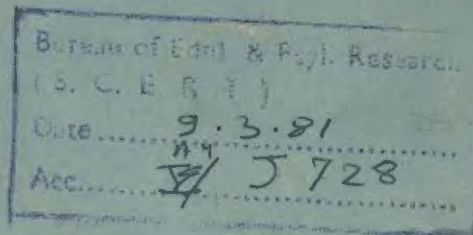 Bureau of Ednl. & Psyl. Research
(S. C. E. R. T.)
Date .......... 9.3.81 ..........
Acc. .......... J 728 ..........